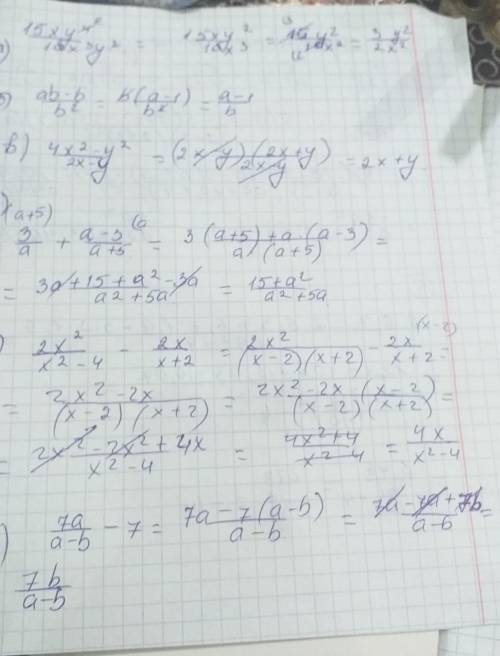 а) 15xy⁴/10x³y² = 15xy²/10x³ = 15y²/10x² = 3y²/2x²
б) ab-b/b² = b(a-1)/b² = a-1/b
в) 4x²-y²/2x-y = (2x-y)(2x+y)/2x-y = 2x+y
) 3/a (a+5) + a-3/a+5 (a = 3(a+5)+a·(a-3)/a(a+5) =
= 3a+15+a²-3a/a²+5a = 15+a²/a²+5a
) 2x²/x²-4 - 2x/x+2 = 2x²/(x-2)(x+2) - 2x/x+2 (x-2) =
= 2x²-2x/(x-2)(x+2) = 2x²-2x(x-2)/(x-2)(x+2) =
= 2x²-2x²+4x/x²-4 = 4x/x²-4
) 7a/a-b - 7 = 7a-7(a-b)/a-b = 7a-7a+7b/a-b =
7b/a-b